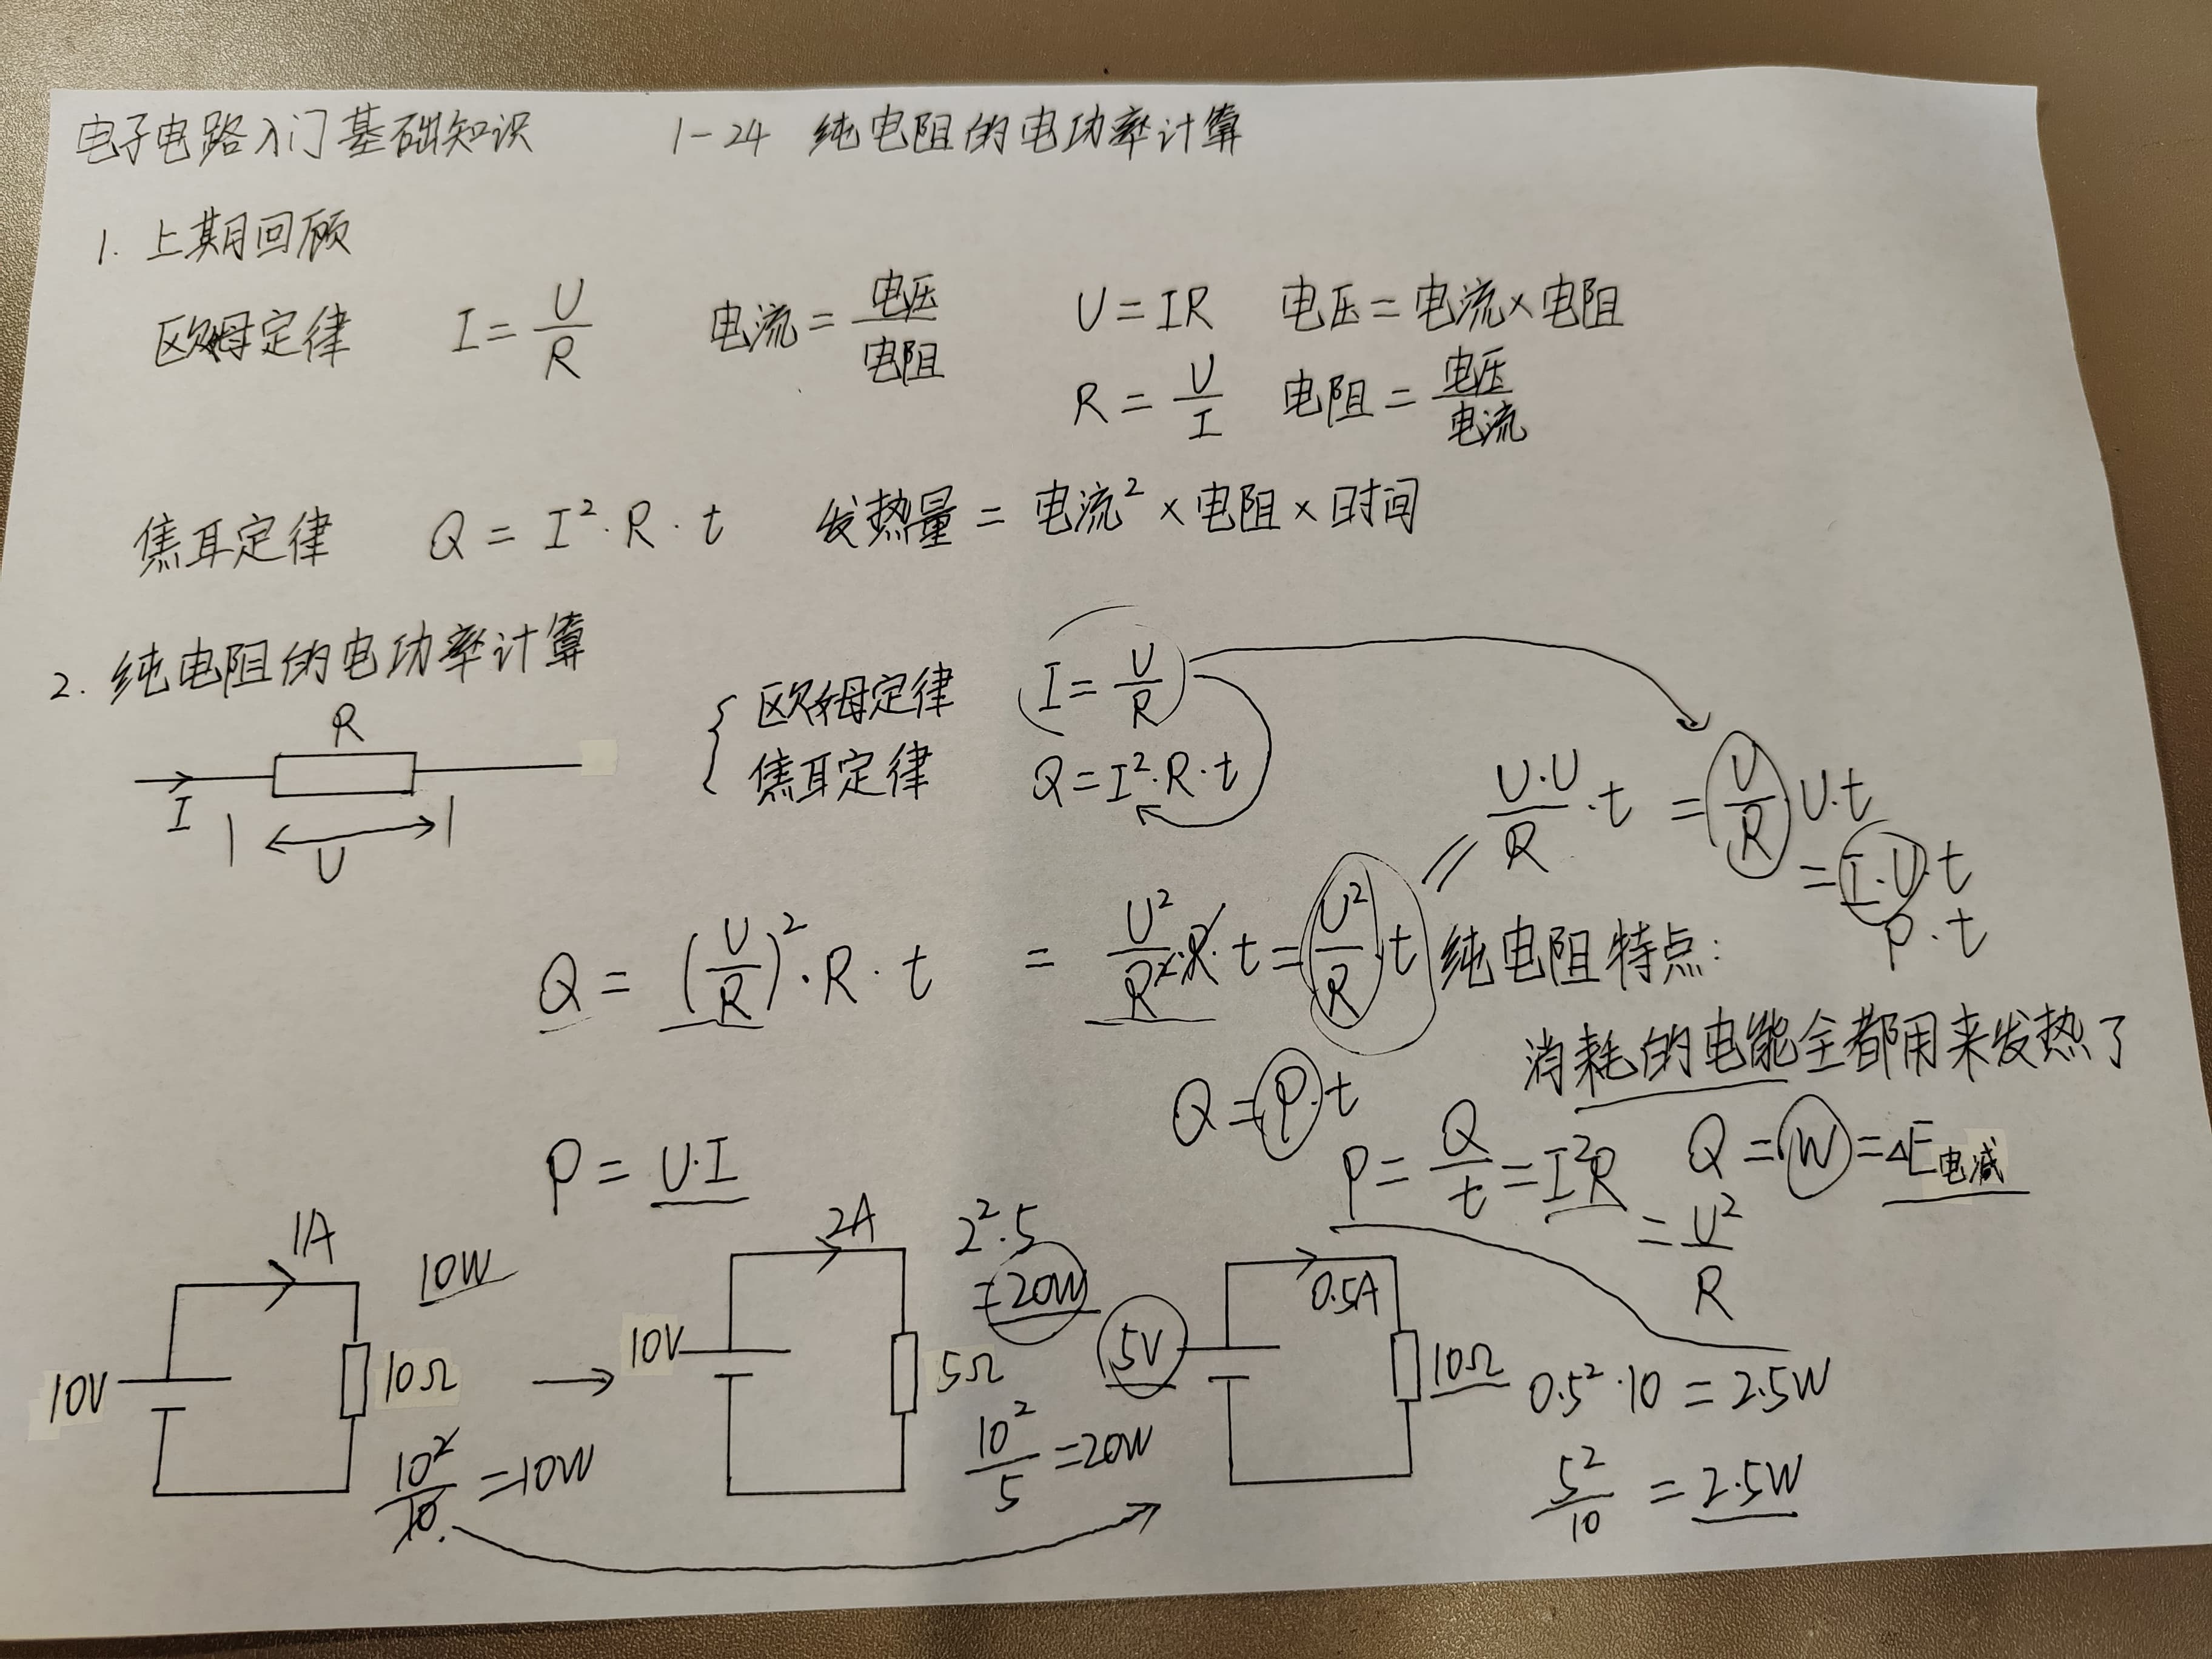 电子电路入门基础知识 1-24 纯电阻的电功率计算
1. 上期回顾
欧姆定律 I = U/R 电流 = 电压/电阻 U = IR 电压 = 电流 × 电阻
R = U/I 电阻 = 电压/电流
焦耳定律 Q = I²·R·t 发热量 = 电流² × 电阻 × 时间
2. 纯电阻的电功率计算
R
I
U
{ 欧姆定律 I = U/R
焦耳定律 Q = I²·R·t
U·U/R ·t = U/R U·t
= I·U·t
P·t
Q = (U/R)²·R·t = U²/R²·R·t = U²/R ·t
纯电阻特点:
消耗的电能全都用来发热了
Q = P·t
P = U·I
P = Q/t = I²R
= U²/R
Q = W = ΔE电减
1A
10W
10V
10Ω
10²/10 = 10W
2A
2²·5
=20W
10V
5Ω
10²/5 = 20W
5V
0.5A
10Ω
0.5²·10 = 2.5W
5²/10 = 2.5W